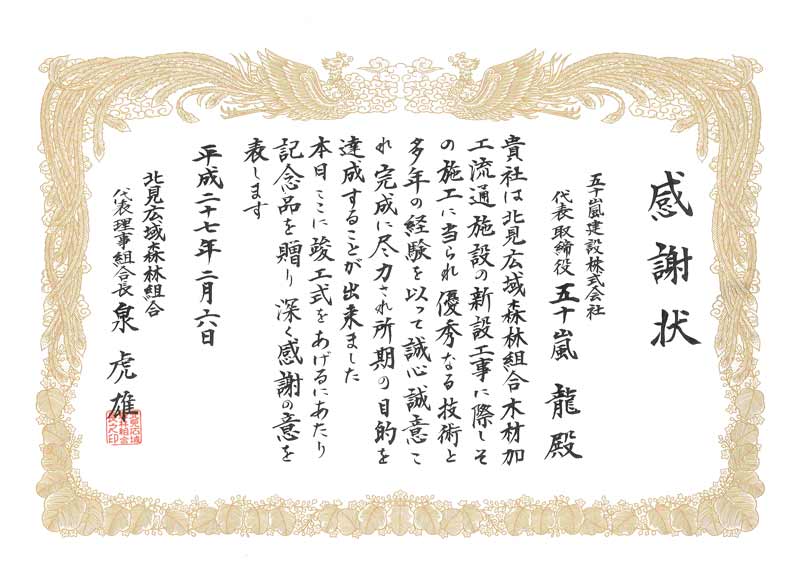 感謝状
五十嵐建設株式会社
代表取締役 五十嵐 龍殿
貴社は北見広域森林組合木材加
工流通施設の新設工事に際しそ
の施工に当られ優秀なる技術と
多年の経験を以って誠心誠意こ
れ完成に尽力され所期の目的を
達成することが出来ました
本日ここに竣工式をあげるにあたり
記念品を贈り深く感謝の意を
表します
平成二十七年二月六日
北見広域森林組合
代表理事組合長 泉 虎雄